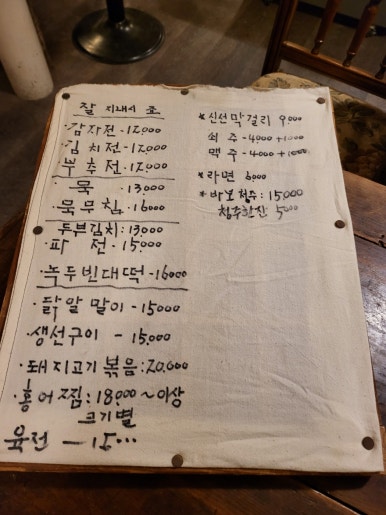 잘 지내시죠
감자전 - 12,000
김치전 - 12,000
부추전 - 12,000
· 묵 13,000
· 묵무침 - 16000
두부김치 : 13000
· 파 전 - 15,000
· 녹두빈대떡 - 16000
· 닭알말이 - 15000
· 생선구이 - 15,000
· 돼지고기볶음 : 20,000
· 홍어찜 : 18,000 ~ 이상
크기별
육전 - 15000
* 신선막걸리 9,000
쇠주 - 4000 + 1000
맥주 - 4000 + 1000
* 라면 6000
* 바보청주 : 15,000
청주한잔 5000